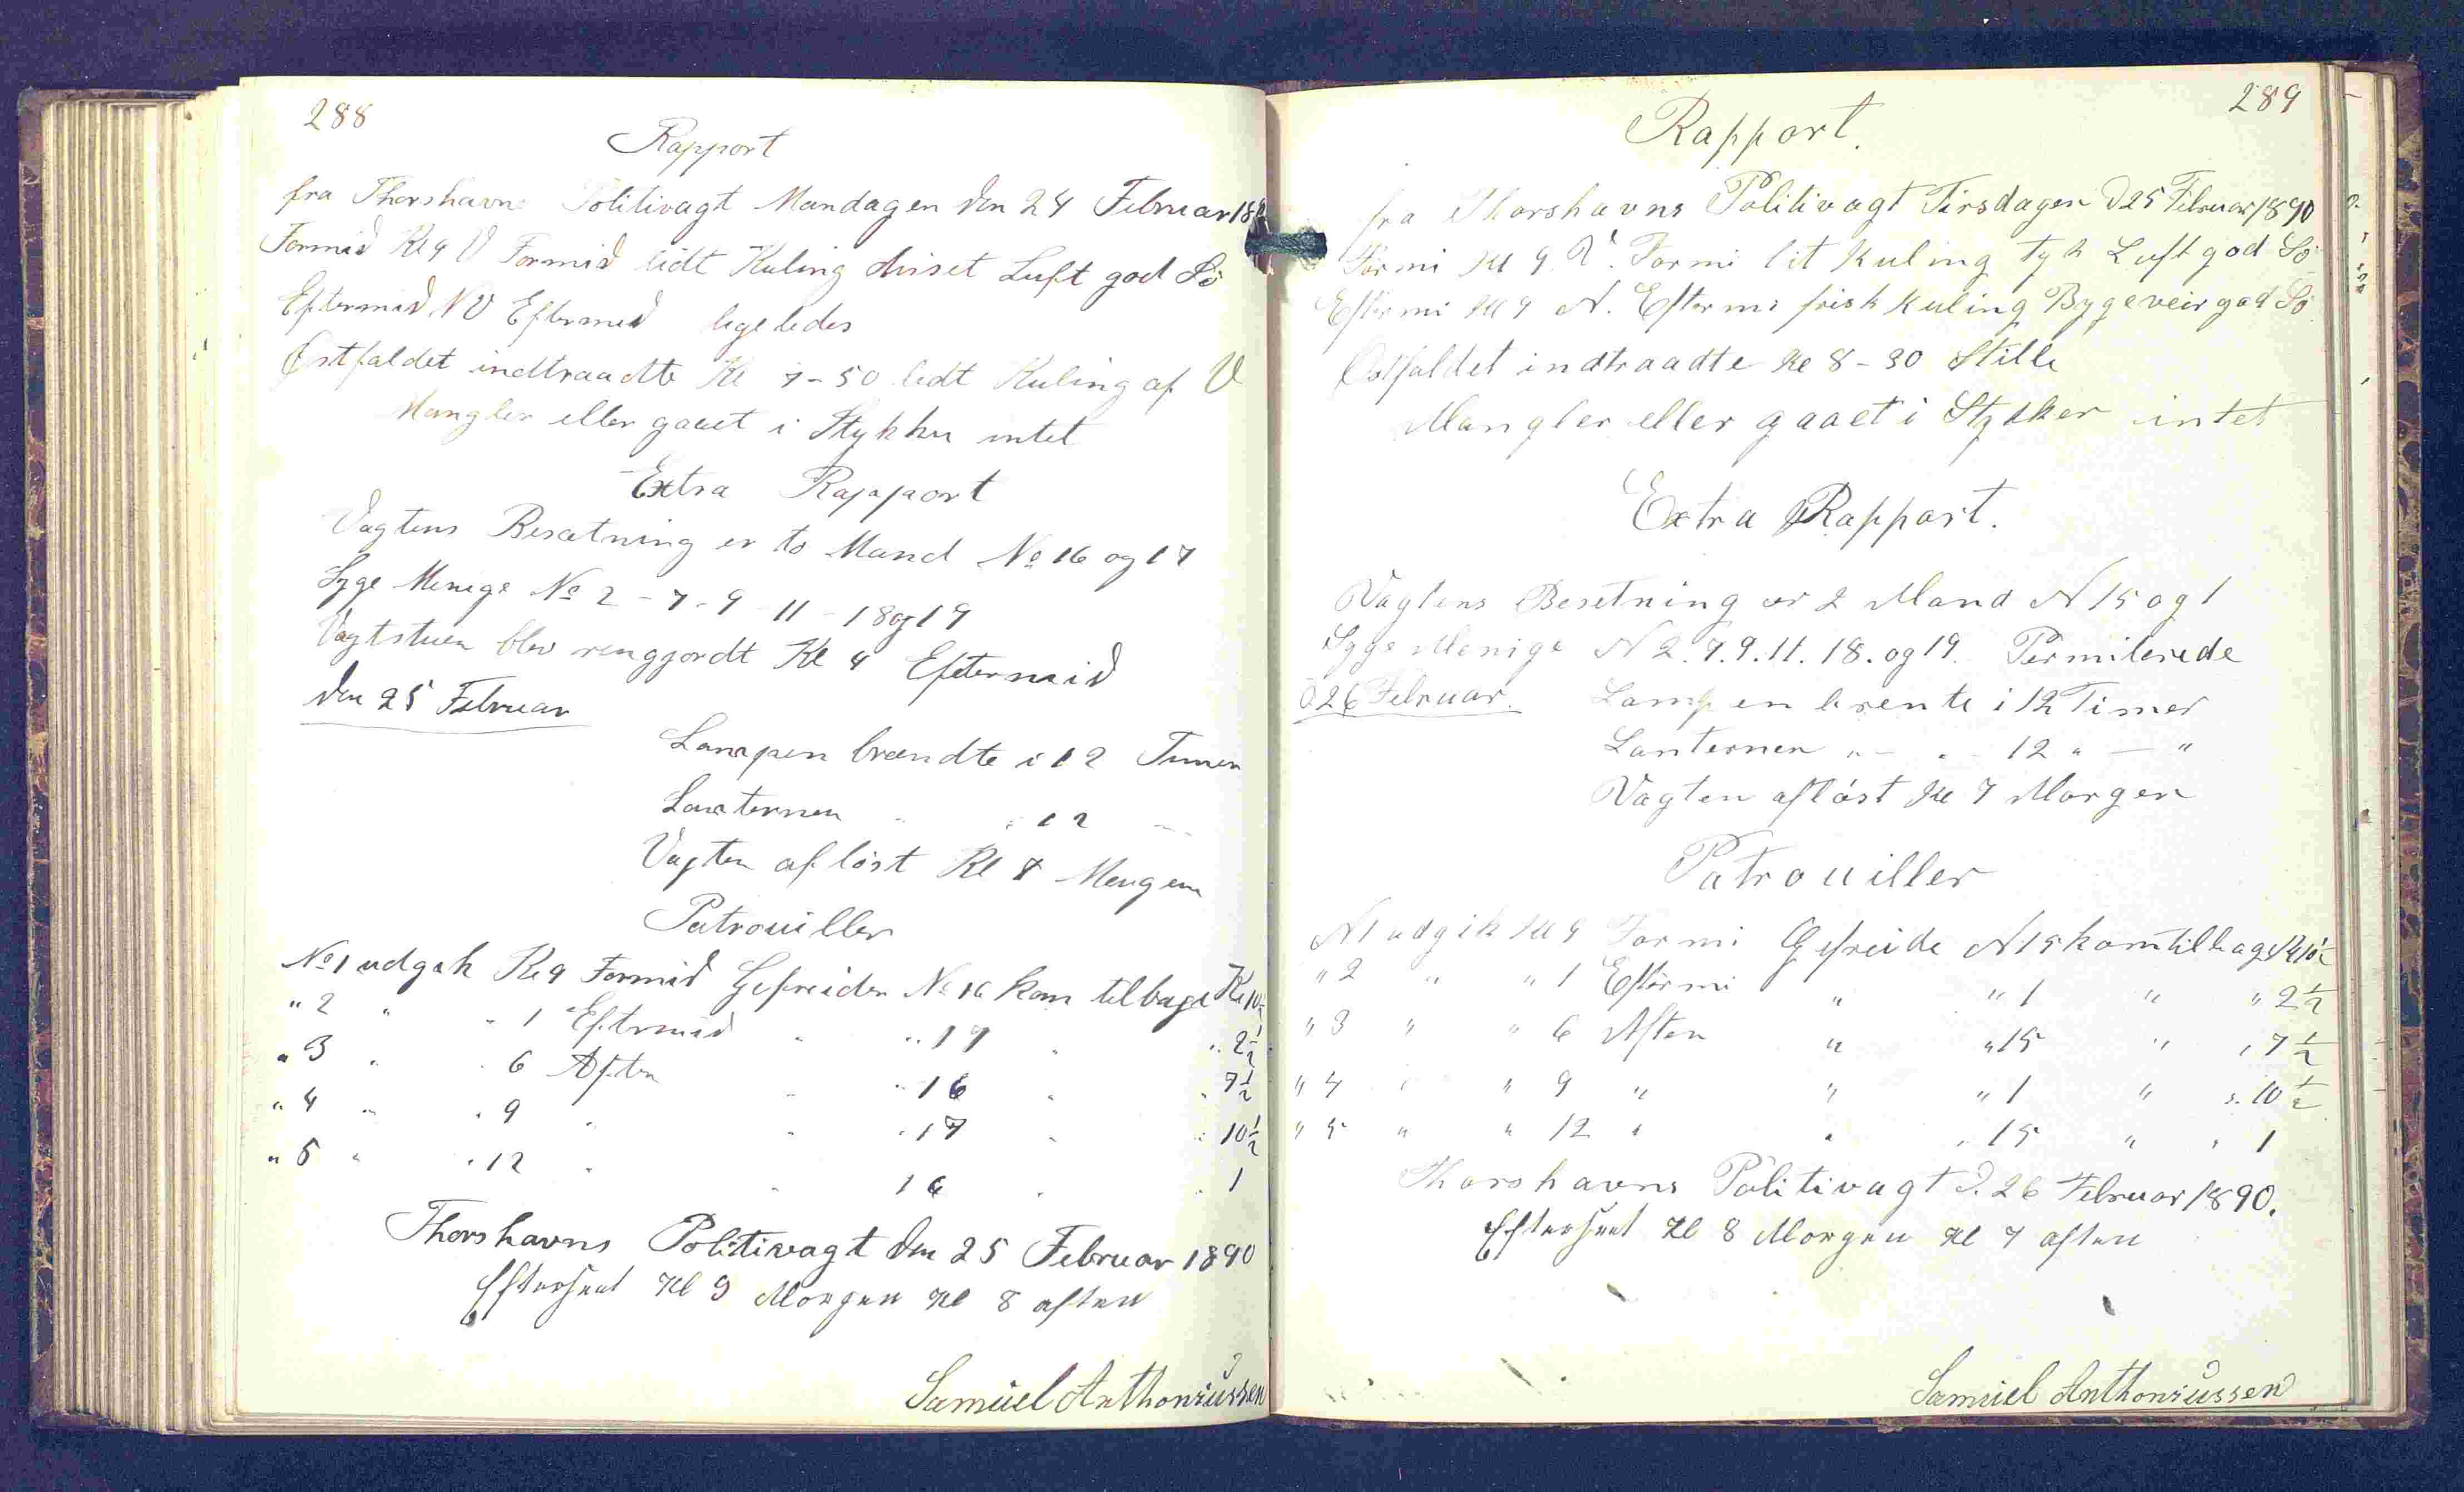 288
Rapport
fra Thorshavns Politivagt Mandagen den 24 Februar 18
Formid Kl 9 V Formid lidt Kuling diiset Luft god Sö
Eftermid NV Eftermid ligeledes
Østfaldet indtraadte Kl 7-50 lidt Kuling af V
Mangler eller gaaet i Stykker intet
Extra Rapport
Vagtens Besætning er to Mand No 16 og 17
Syge Menige No 2 - 7 - 9 - 11 - 18 og 19
Vagtstuen blev rengjordt Kl 4 Eftermid
den 25 Februar
Lampen brændte i 12 Timer
Lanternen " " 12 "
Vagten aflöst Kl 8 Morgen
Patrouiller
No 1 udgik Kl 9 Formid Gefreider No 16 kom tilbage Kl 10½
" 2 " " 1 Eftermid " " 17 " " 2½
" 3 " " 6 Aften " " 16 " " 7½
" 4 " " 9 " " " 17 " " 10½
" 5 " " 12 " " 16 " " 1
Thorshavns Politivagt den 25 Februar 1890
Efterseet Kl 9 Morgen Kl 8 aften
Samüel Anthoniüssen
289
Rapport.
fra Thorshavns Politivagt Tirsdagen D 25 Februar 1890
Formi Kl 9 V. Formi lit kuling tyk Luft god Sö
Eftermi Kl 4 N. Eftermi frisk kuling Bygeveir god Sö
Ostfaldet indtraadte Kl 8-30 Stille
Mangler eller gaaet i Stykker intet
Extra Rapport.
Vagtens Besetning er 2 Mand N 15 og 1
Syge Menige N 2. 7. 9. 11. 18. og 19. Permiterede
D 26 Februar. Lampen brente i 12 Timer
Lanternen " — " 12 " — "
Vagten aflöst Kl 7 Morgen
Patrouiller
N 1 udgik Kl 9 Formi Gefreide N 15 kom tilbage Kl 10½
" 2 " " 1 Eftermi " " 1 " " 2½
" 3 " " 6 Aften " " 15 " " 7½
" 4 " " 9 " " " 1 " " 10½
" 5 " " 12 " " " 15 " " 1
Thorshavns Politivagt d. 26 Februar 1890.
Efterseet Kl 8 Morgen Kl 7 aften
Samüel Anthoniüssen